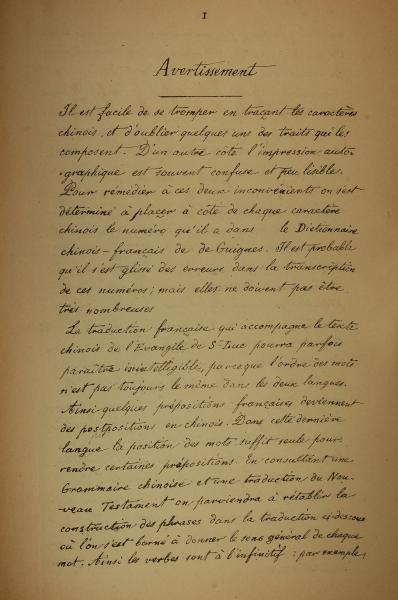 1
Avertissement
Il est facile de se tromper en traçant les caractères
chinois, et d'oublier quelques uns des traits qui les
composent. D'un autre côté l'impression auto-
-graphique est souvent confuse et peu lisible.
Pour remédier à ces deux inconvénients on s'est
déterminé à placer à côté de chaque caractère
chinois le numéro qu'il a dans le Dictionnaire
chinois-français de de Guignes. Il est probable
qu'il s'est glissé des erreurs dans la transcription
de ces numéros; mais elles ne doivent pas être
très nombreuses
La traduction française qui accompagne le texte
chinois de l'Evangile de St Luc pourra parfois
paraître inintelligible, parceque l'ordre des mots
n'est pas toujours le même dans les deux langues.
Ainsi quelques prépositions françaises deviennent
des postpositions en chinois. Dans cette dernière
langue la position des mots suffit seule pour
rendre certaines prépositions. En consultant une
Grammaire chinoise et une traduction du Nou-
veau Testament on parviendra à rétablir la
construction des phrases dans la traduction ci-dessous
où l'on s'est borné à donner le sens général de chaque
mot. Ainsi les verbes sont à l'infinitif : par exemple,